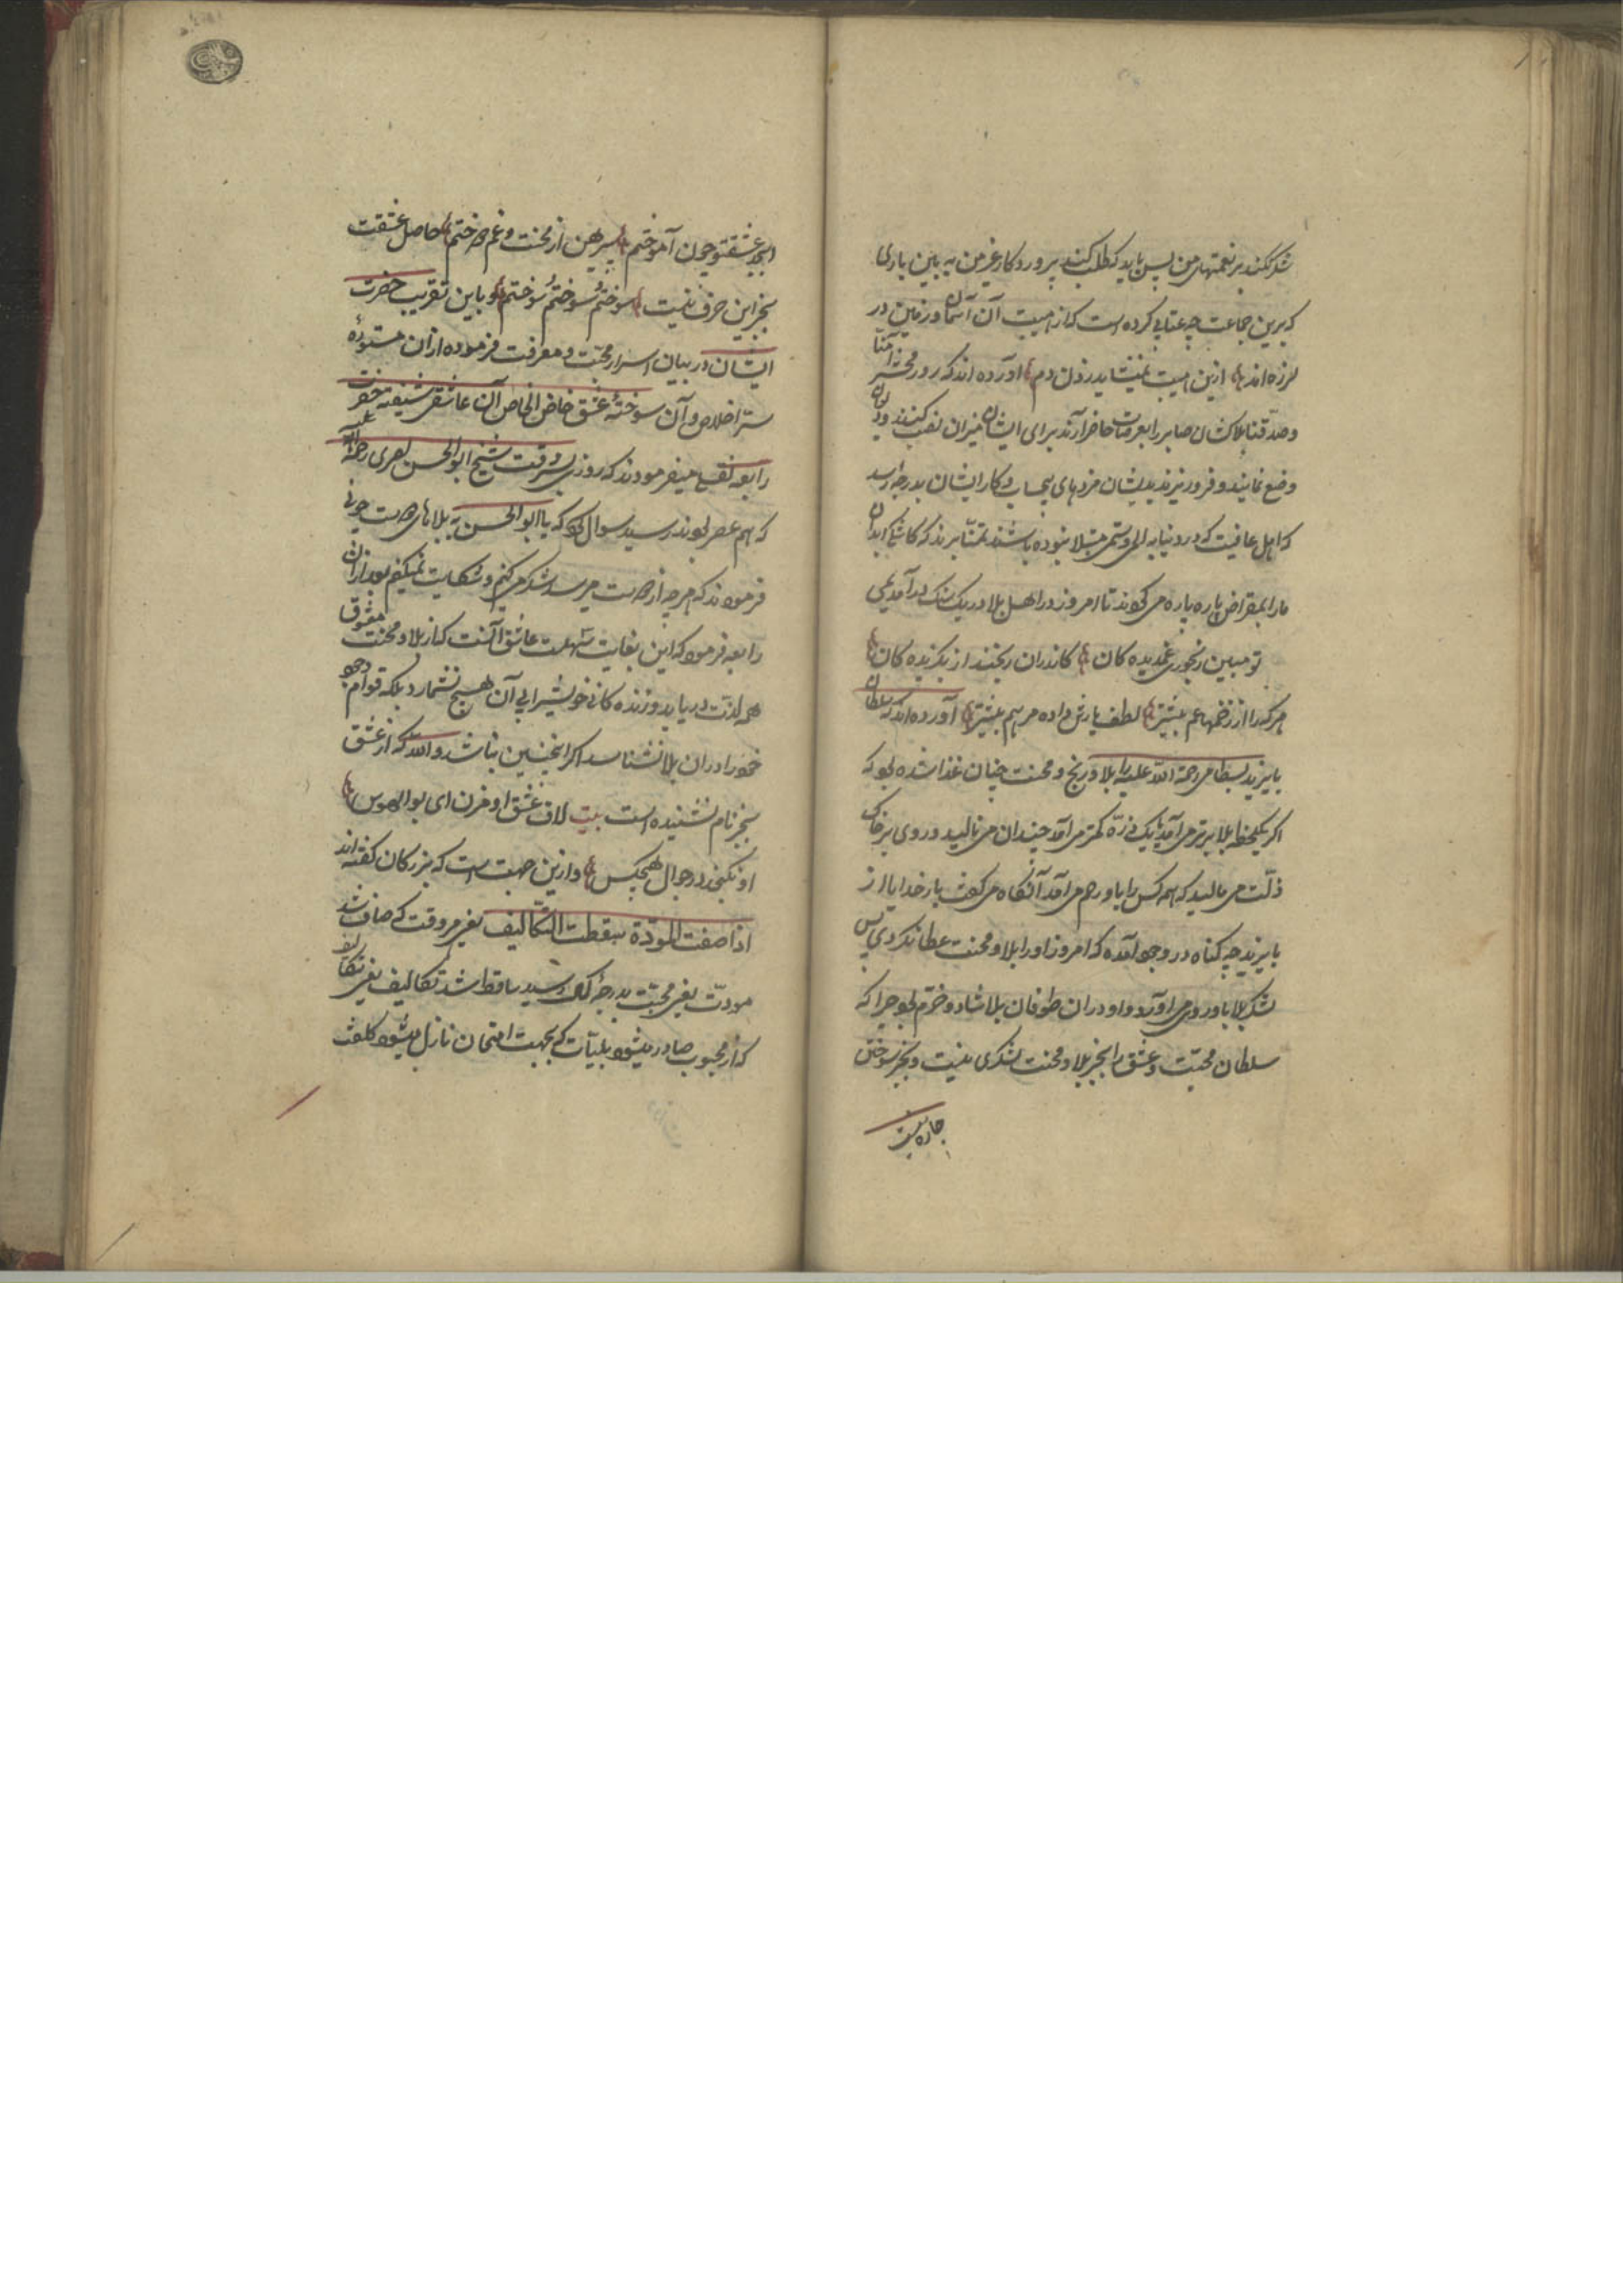 شکر نکند بر نعمتهای من پس باید که طلب کند پروردگار غیر من یه باین یاران
که برین جماعت چه عتابی کرده است که از هیبت آن آسمان و زمین در
لرزه اند ازین هیبت نمیشاید زدن دم آورده اند که روز محشر آمنا
و صدقنا بلاکشان صابر را بعرصات حاضر آرند برای ایشان میزان نصب کنند و دیوان
وضع نمایند و فرو ریزند بدیشان مزدهای بیحساب و کار ایشان بدرجه رسد
که اهل عافیت که در دنیا به المی و ستمی مبتلا نبوده باشند تمنا برند که کاشکی ابدان
ما را بمقراض پاره پاره می کردند تا امروز در اهل بلا در یک سلک در آمدیمی
تو مبین رنجوری غمدیده کان کاندران رنجند از بگزیده کان
هر کرا از زخمها غم بیشتر لطف یارش داده مرهم بیشتر آورده اند که سلطان
بایزید بسطامی رحمة الله علیه را بلا و رنج و محنت چنان غذا شده بود که
اگر یکلحظه بلا برتر می آمد یا یک ذره کمتر می آمد چندان می نالید و روی بر خاک
ذلت می مالید که همه کس را باو رحم می آمد آنگاه می گفت بار خدایا از
بایزید چه گناه در وجود آمده که امروز او را بلا و محنت عطا نکردی پس
لشکر بلا باو روی می آورد و او در آن طوفان بلا شاد و خرم بود چرا که
سلطان محبت و عشق را بجز بلا و محنت لشکری نیست و بجز سوختن
چاره نیست
ابجد عشقت چون آموختم پیرهن از محنت و غم دوختم حاصل عشقت
بجز این حرف نیست سوختم سوختم سوختم و باین تقریب حضرت
ایشان در بیان اسرار محبت و معرفت فرموده از آن مستوره
ستر اخلاص و آن سوختهٔ عشق خاص الخاص آن عاشق شیفته حضرت
رابعه نقل میفرمودند که روزی بسر وقت شیخ ابو الحسن بصری رحمة الله علیه
که هم عصر بودند رسید سوال کرد که یا ابو الحسن به بلاهای دوست چونی
فرمودند که هر چه از دوست میرسد شکر می کنم و شکایت نمیکنم بعد از آن
رابعه فرمود که این بغایت سهلست عاشق آنست که از بلا و محنت معشوق
همه لذت دریابد و زنده کانی خویش را بی آن هیچ نشمارد بلکه قوام وجود
خود را در آن بلا نشناسد اگر اینچنین نباشد والله که از عشق
بجز نام نشنیده است بیت لاف عشق او مزن ای بو الهوس
او نگنجد در جوال هیچکس و ازین جهت است که بزرگان گفته اند
اذا صفت المودة سقطت التکالیف یعنی هر وقت که صاف شد
مودت یعنی محبت بدرجهٔ کمال رسید ساقط شد تکالیف یعنی تکالیفی
که از محبوب صادر میشود بلیات که بجهت امتحان نازل میشود کلفت